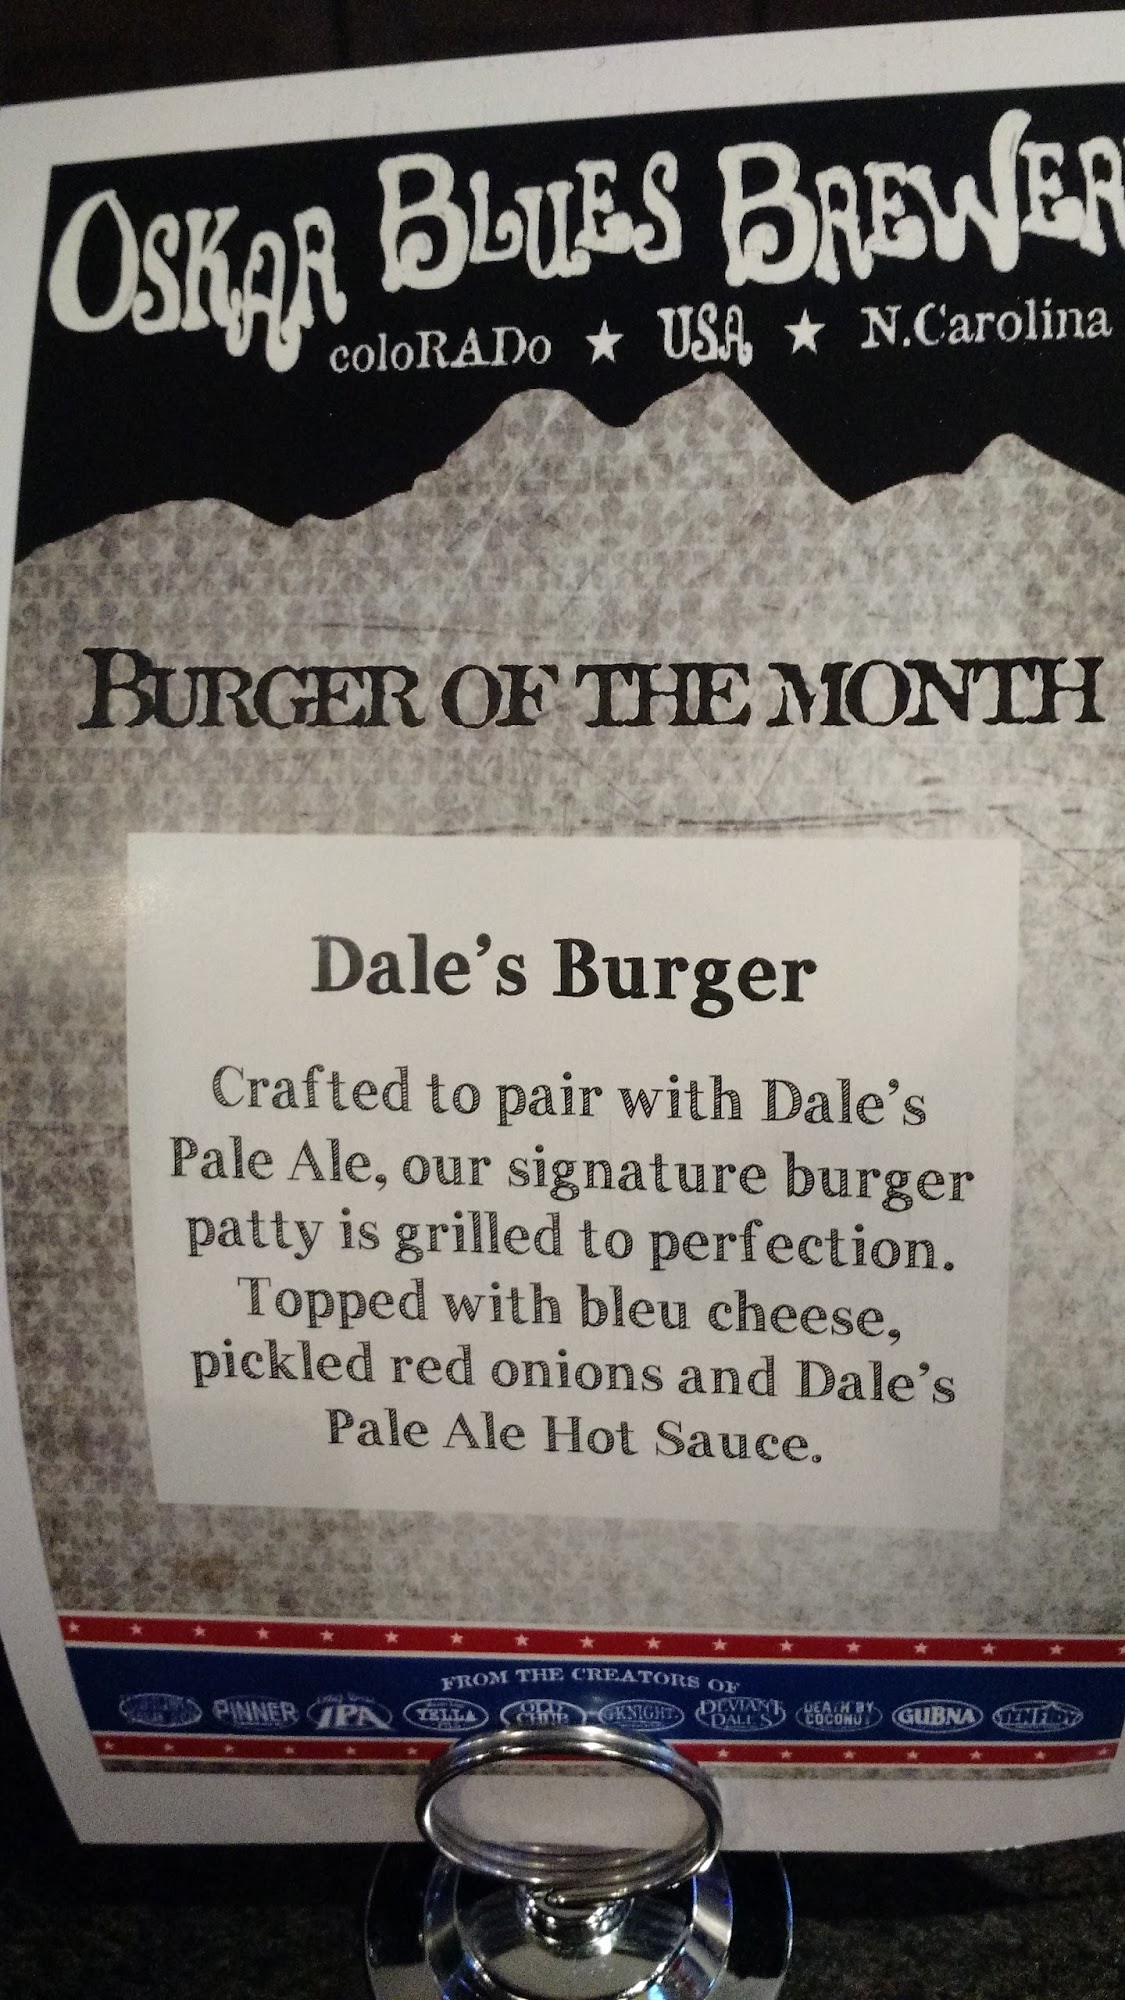 OSKAR BLUES BREWER
coloRADo ★ USA ★ N.Carolina
BURGER OF THE MONTH
Dale's Burger
Crafted to pair with Dale's
Pale Ale, our signature burger
patty is grilled to perfection.
Topped with bleu cheese,
pickled red onions and Dale's
Pale Ale Hot Sauce.
FROM THE CREATORS OF
PINNER IPA YELLA OLD CHUB G'KNIGHT DEVIANT DALE'S DEATH BY COCONUT GUBNA TENFIDY